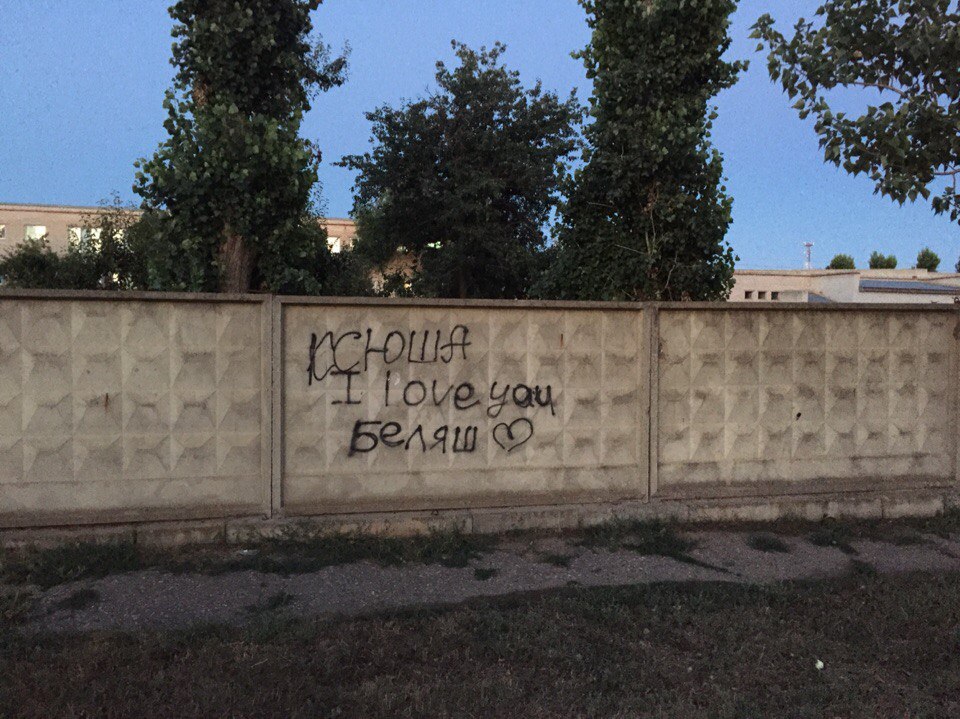 Ксюша
I love you
Беляш ♡